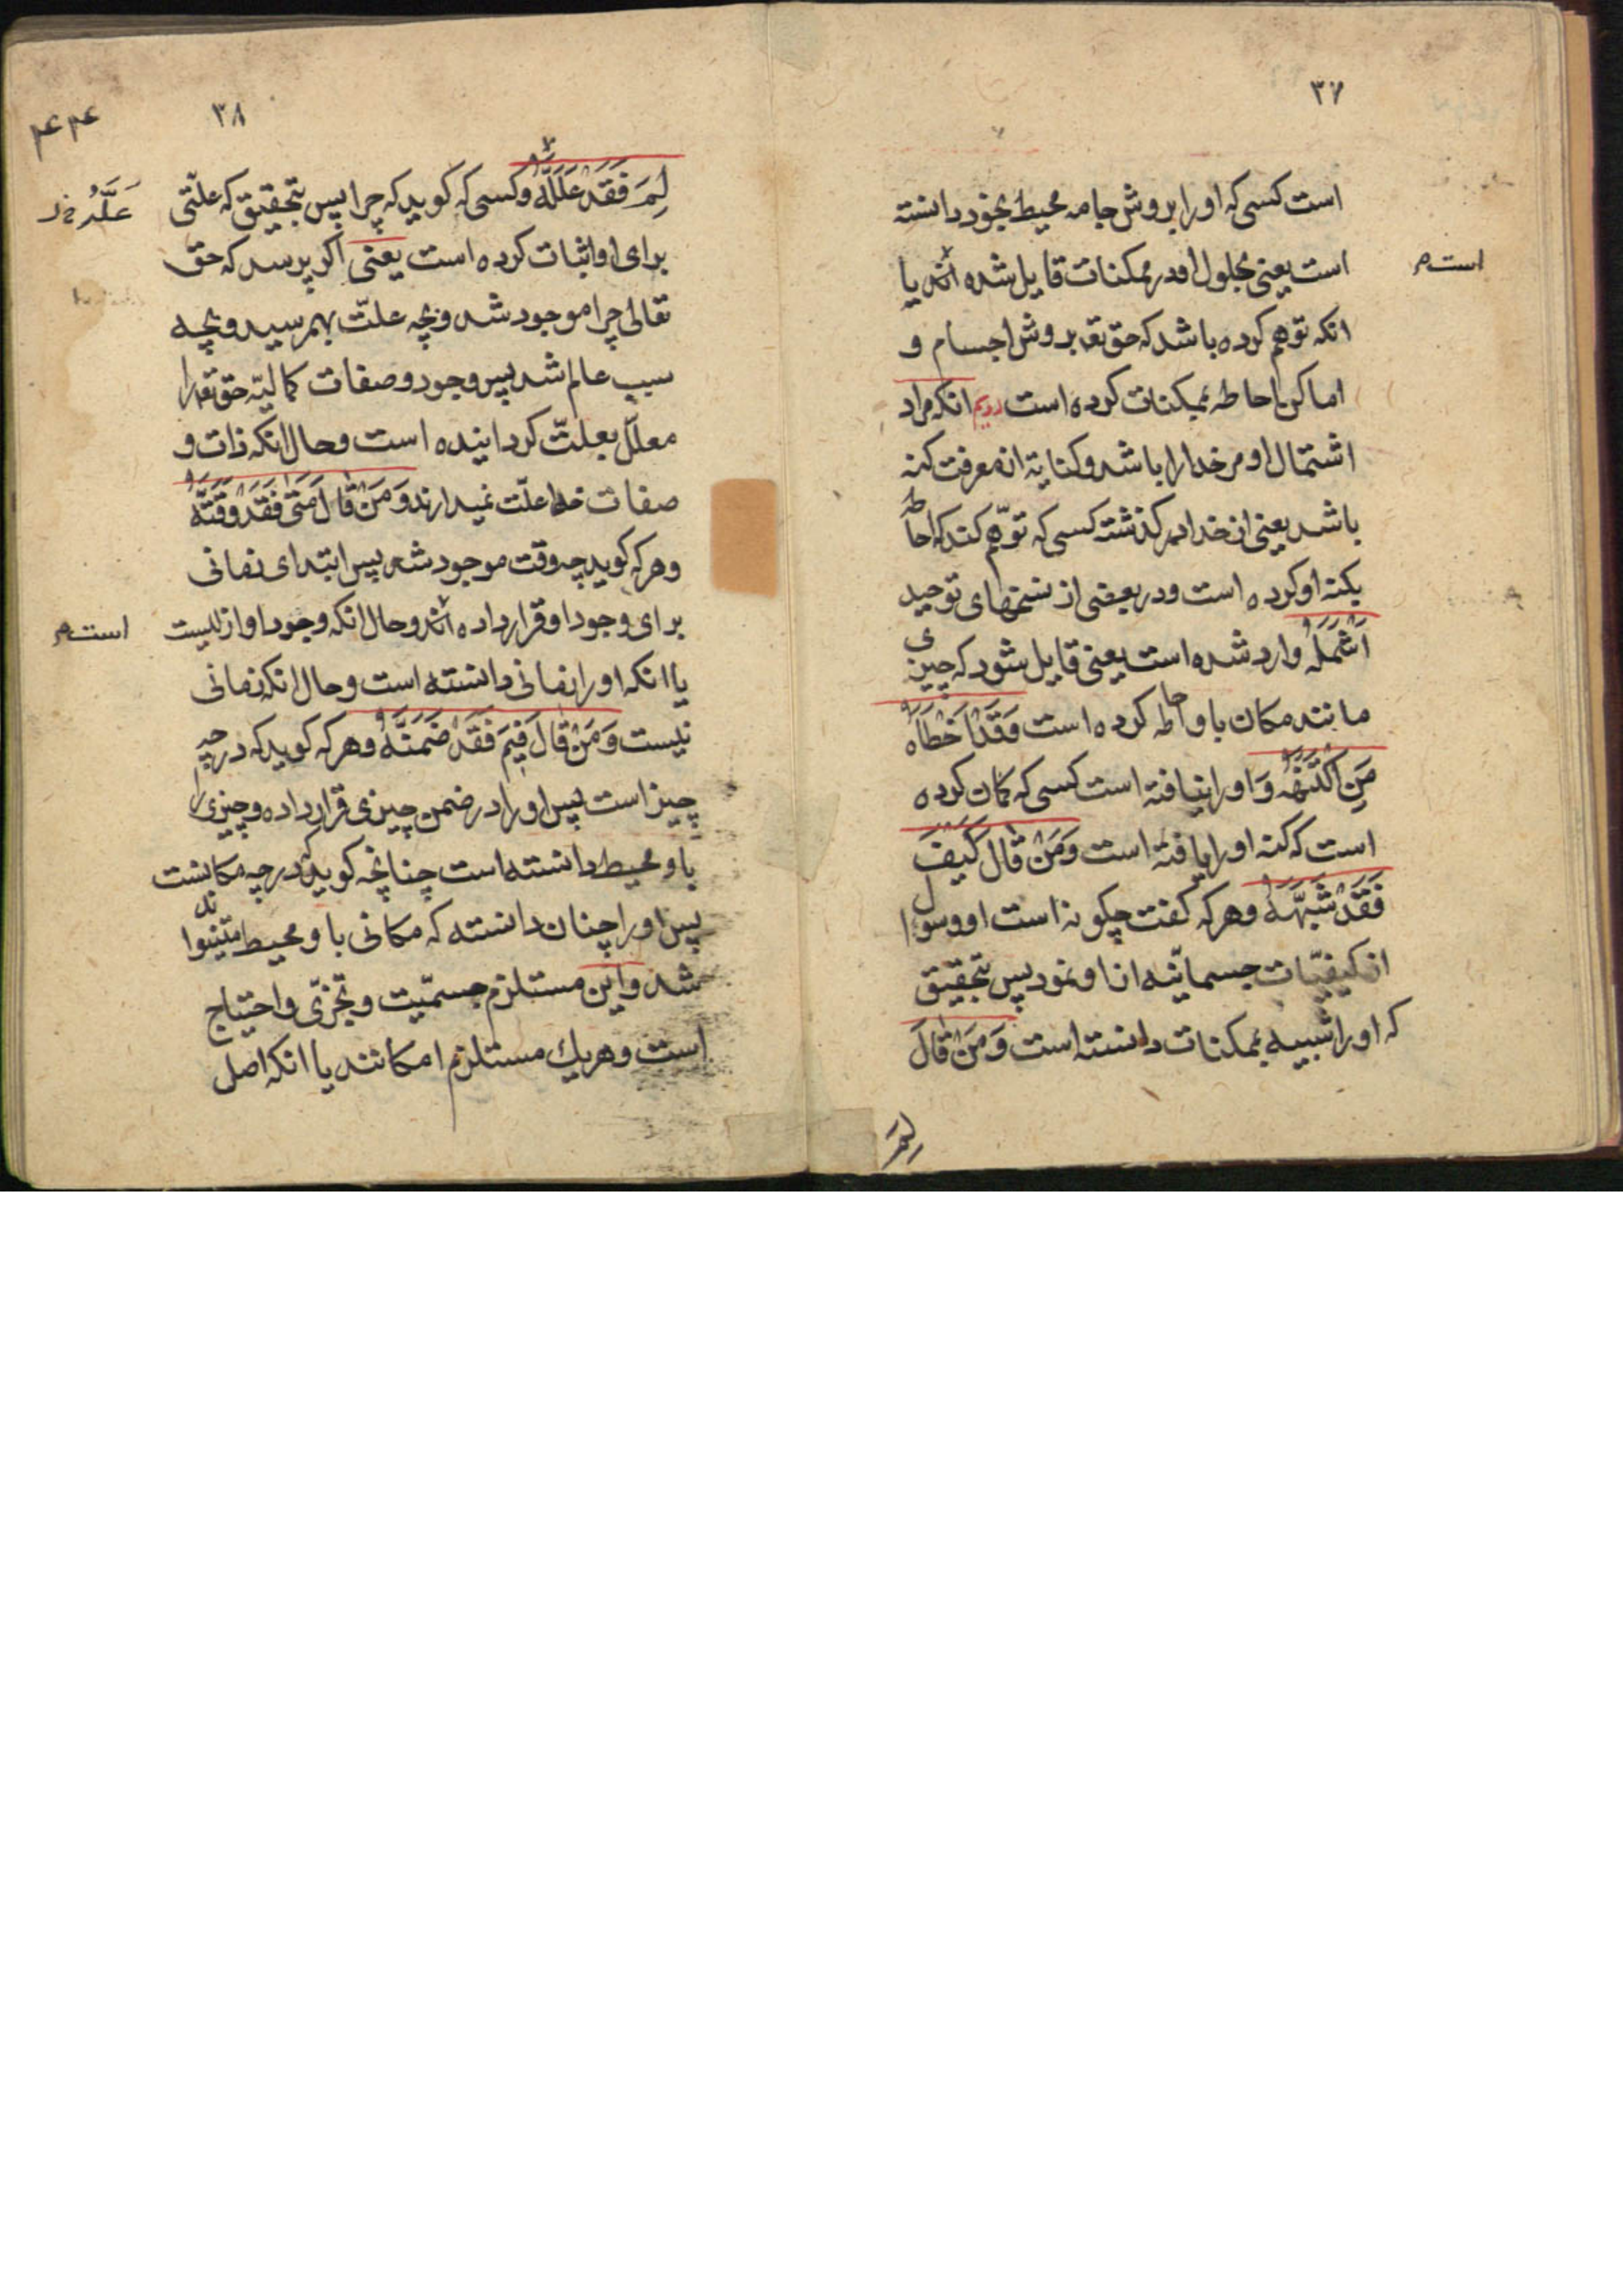 ۳۷
است کسی که او را بروش جامه محیط بخود دانسته
است یعنی بحلول او در ممکنات قایل شده اند یا
است م
انکه توهم کرده باشد که حق تعه بروش اجسام و
اماکن احاطه بممکنات کرده است دویم انکه مراد
اشتمال او مر خدا را باشد و کنایة از معرفت کنه
باشد یعنی از خدا در کذشته کسی که توهّم کند که احاطه
بکنه او کرده است و در بعضی از نسخهای توحید
اَشْمَلَهُ وارد شده است یعنی قایل شود که چیزی
مانند مکان باو احاطه کرده است وَقَدْ اَخْطَاَهُ
مَنِ اکْتَنَهَهُ وَ او را نیافته است کسی که کمان کرده
است که کنه او را یافته است وَمَنْ قٰالَ کَیْفَ
فَقَدْ شَبَّهَهُ و هر که کفت چکونه است او و سوال
از کیفیّات جسمانیّه از او نمود پس بتحقیق
که او را شبیه بممکنات دانسته است وَمَنْ قٰالَ
لِمَ
۳۸
۴۴
لِمَ فَقَدْ عَلَّلَهُ و کسی که کوید که چرا پس بتحقیق که علّتی
عَلَّهُ خ ل
برای او اثبات کرده است یعنی اکر پرسد که حق
تعالی چرا موجود شد و بچه علّت بهمرسید و بچه
سبب عالم شد پس وجود و صفات کمالیّه حق تعه را
معلّل بعلّت کردانیده است و حال انکه ذات و
صفات خدا علّت نمیدارند وَمَنْ قٰالَ مَتٰی فَقَدْ وَقَّتَهُ
و هر که کوید چه وقت موجود شد پس ابتدای زمانی
برای وجود او قرار داده اند و حال انکه وجود او ازلیست
است م
یا انکه او را زمانی دانسته است و حال انکه زمانی
نیست وَمَنْ قٰالَ فِیمَ فَقَدْ ضَمَّنَهُ و هر که کوید که در چه
چیز است پس او را در ضمن چیزی قرار داده و چیزی را
باو محیط دانسته است چنانچه کوید که در چه مکانست
پس او را چنان دانسته که مکانی باو محیط میتواند
شد و این مستلزم جسمیّت و تجزّی و احتیاج
است و هریك مستلزم امکانند یا انکه اصل